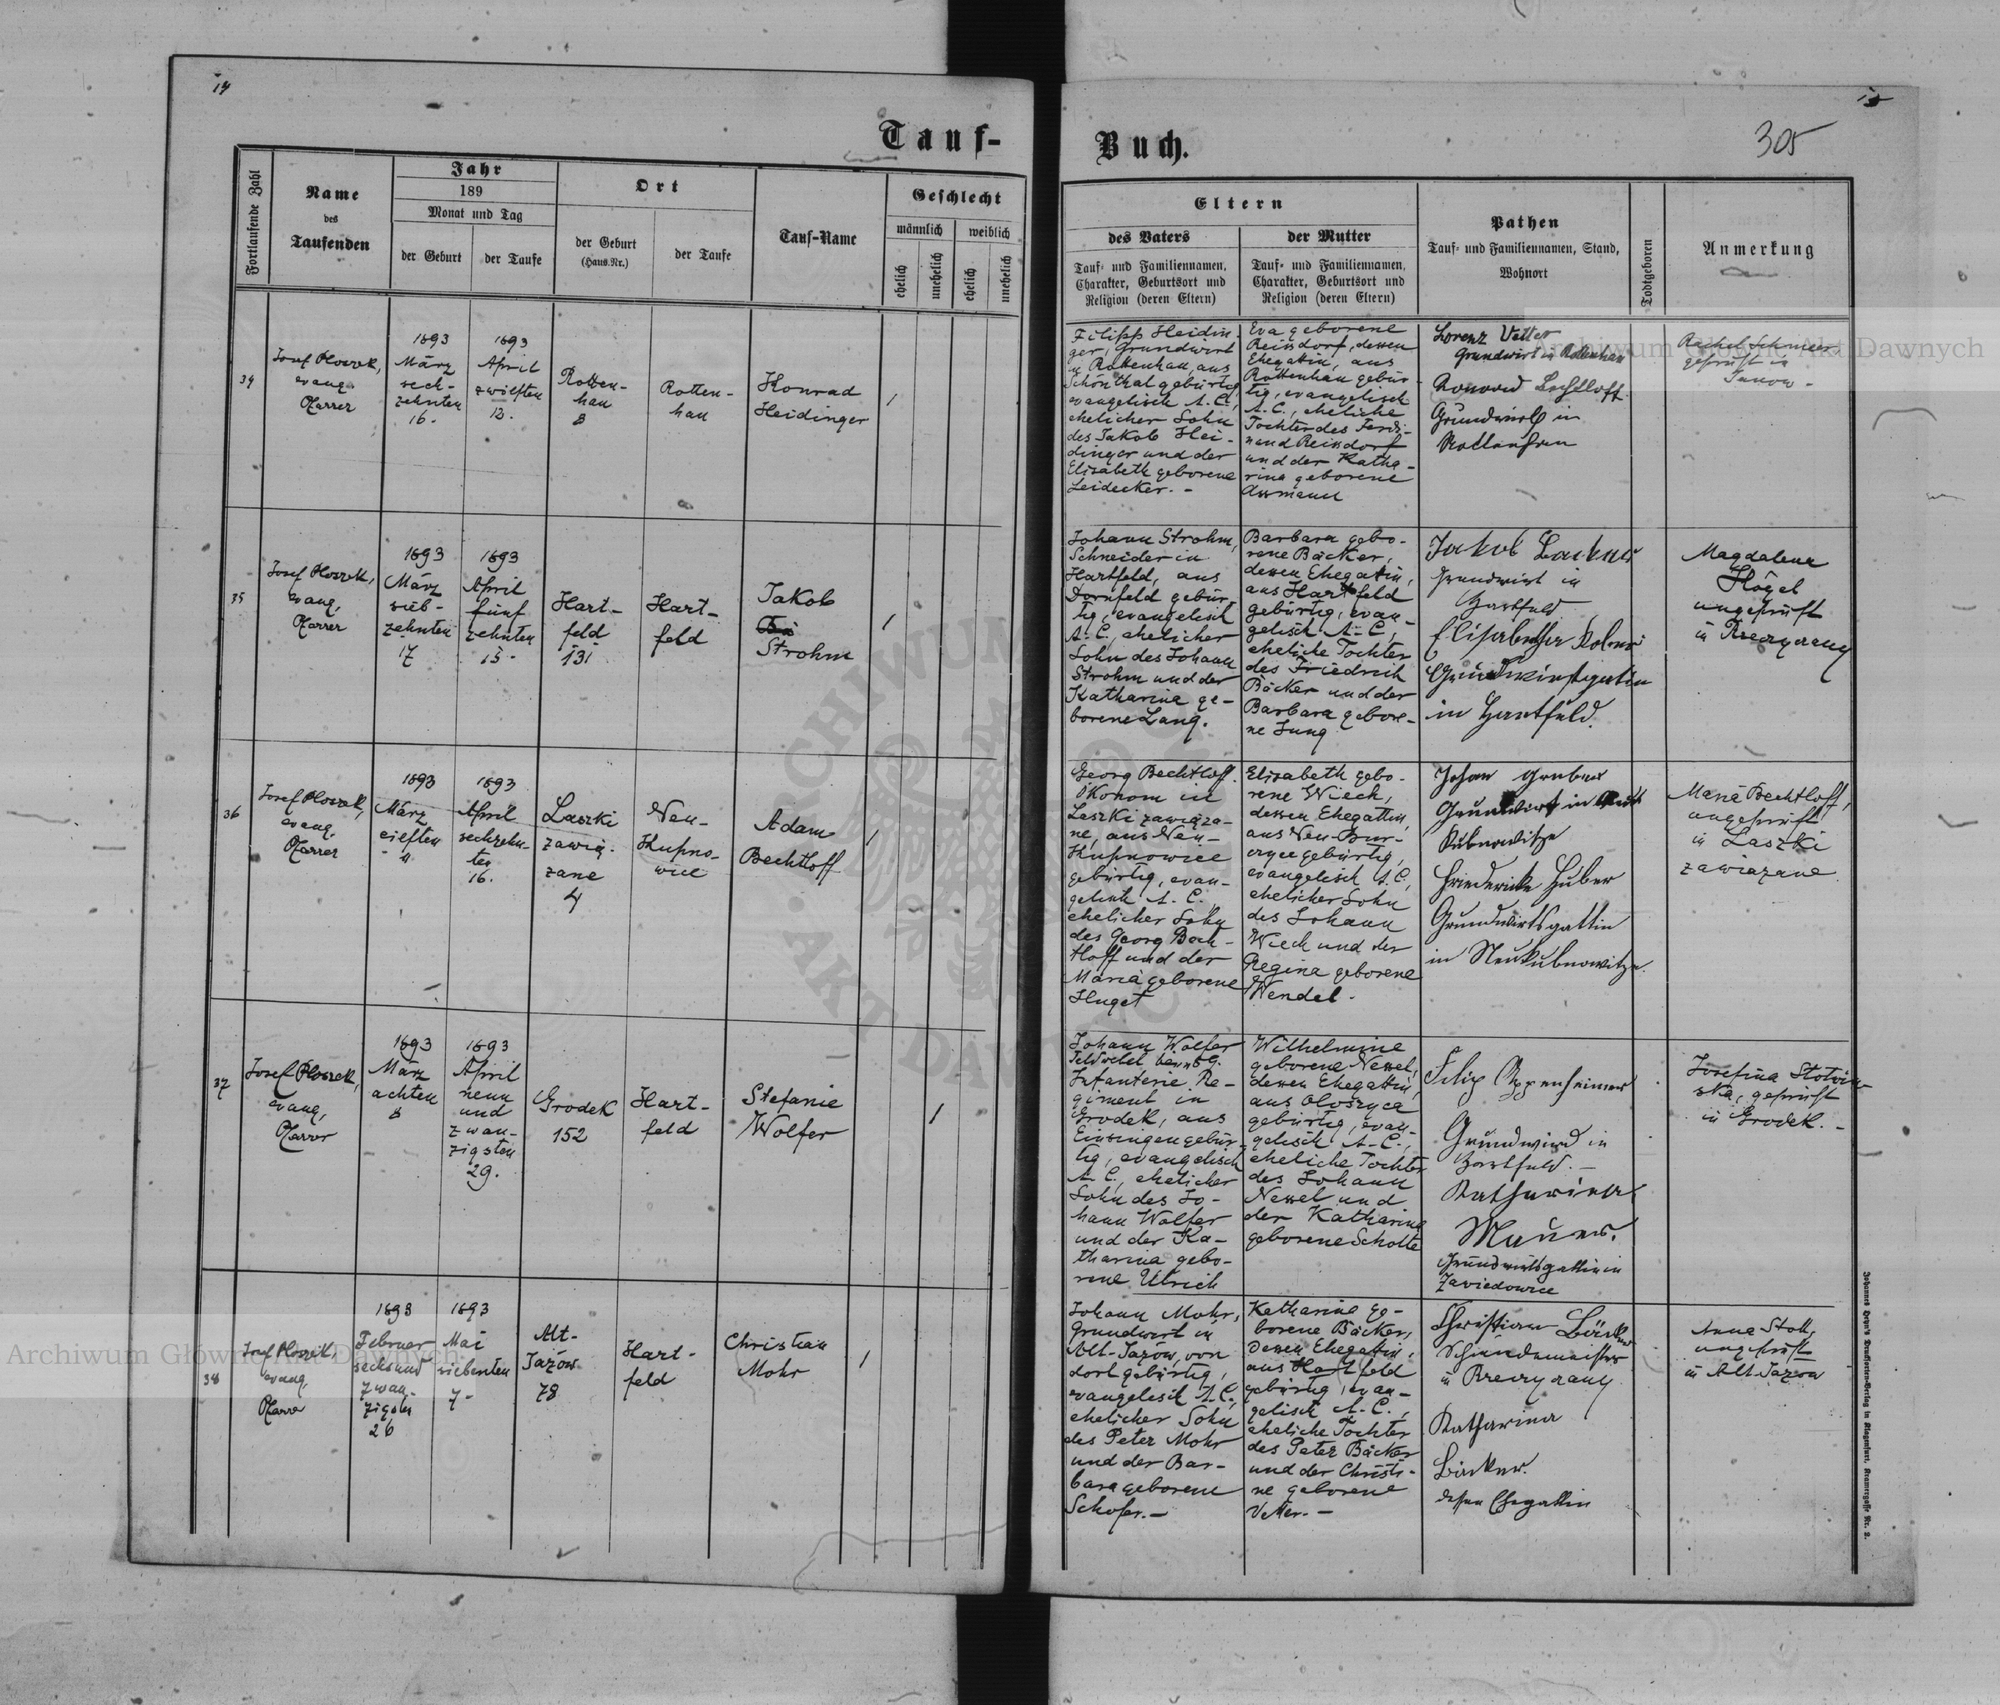 14
Tauf-
Fortlaufende Zahl
Name
des
Taufenden
Jahr
189
Monat und Tag
der Geburt
der Taufe
Ort
der Geburt
(Haus-Nr.)
der Taufe
Tauf-Name
Geschlecht
männlich
weiblich
ehelich
unehelich
ehelich
unehelich
34
Josef Ploszek,
evang.
Pfarrer
1893
März
sech-
zehnten
16.
1893
April
zwölften
12.
Rotten-
han
8
Rotten-
han
Konrad
Heidinger
1
35
Josef Ploszek,
evang.
Pfarrer
1893
März
sieb-
zehnten
17
1893
April
fünf
zehnten
15.
Hart-
feld
131
Hart-
feld
Jakob
Strohm
1
36
Josef Ploszek,
evang.
Pfarrer
1893
März
eilften
11
1893
April
sechzehn-
ten
16.
Laszki
zawią-
zane
4
Neu-
Kupno-
wice
Adam
Bechtloff
1
37
Josef Ploszek,
evang.
Pfarrer
1893
März
achten
8
1893
April
neun
und
zwan-
zigsten
29.
Grodek
152
Hart-
feld
Stefanie
Wolfer
1
38
Josef Ploszek,
evang.
Pfarrer
1893
Februar
sechsund
zwan-
zigsten
26
1893
Mai
siebenten
7-
Alt-
Jazow
78
Hart-
feld
Christian
Mohr
1
Buch.
305
Eltern
des Vaters
Tauf- und Familiennamen,
Charakter, Geburtsort und
Religion (deren Eltern)
der Mutter
Tauf- und Familiennamen,
Charakter, Geburtsort und
Religion (deren Eltern)
Pathen
Tauf- und Familiennamen, Stand,
Wohnort
Todtgeboren
Anmerkung
Filipp Heidin
ger, Grundwirt
in Rottenhan, aus
Schönthal gebürtig,
evangelisch A.C.,
ehelicher Sohn
des Jakob Hei-
dinger und der
Elisabeth geborene
Leidecker. -
Eva geborene
Reissdorf, dessen
Ehegattin, aus
Rottenhan gebür-
tig, evangelisch
A.C., eheliche
Tochter des Ferdi-
nand Reissdorf
und der Katha-
rina geborene
Assmann
Lorenz Vetter
Grundwirt in Rottenhan
Konrad Bechtloff
Grundwirth in
Rottenhan
Rachel
geprüft in
Janow -
Johann Strohm,
Schneider in
Hartfeld, aus
Dornfeld gebür-
tig, evangelisch
A.C., ehelicher
Sohn des Johann
Strohm und der
Katharina ge-
borene Lang.
Barbara gebo-
rene Bäcker,
dessen Ehegattin,
aus Hartfeld
gebürtig, evan-
gelisch A.C.,
eheliche Tochter
des Friedrich
Bäcker und der
Barbara gebore-
ne Jung
Jakob
Grundwirt in
Hartfeld
Elisabetha
Grundwirtsgattin
in Hartfeld.
Magdalena
Högel
ungeprüft
in
Georg Bechtloff,
Ökonom in
Laszki zawiąza-
ne, aus Neu-
Kupnowice
gebürtig, evan-
gelisch A.C.
ehelicher Sohn
des Georg Bech-
tloff und der
Maria geborene
Huget
Elisabeth gebo-
rene Wiech,
dessen Ehegattin,
aus Neu-
gebürtig,
evangelisch A.C.,
ehelicher Sohn
des Johann
Wiech und der
Regina geborene
Wendel.
Johan Gruber
Grundwirt in Neu
Kubnowitze
Friedericke Huber
Grundwirtsgattin
in Neukubnowitze.
Maria Bechtloff,
ungeprüft
in Laszki
zawiązane
Johann Wolfer
Feldwebel beim 89.
Infanterie Re-
giment in
Grodek, aus
Einsingen gebür-
tig, evangelisch
A.C., ehelicher
Sohn des Jo-
hann Wolfer
und der Ka-
tharina gebo-
rene Ulrich
Wilhelmine
geborene Nessel,
dessen Ehegattin,
aus Oloszyce
gebürtig, evan-
gelisch A.C.,
eheliche Tochter
des Johann
Nessel und
der Katharina
geborene Scholte
Filip Oppenheimer
Grundwird in
Hartfeld. -
Katharina
Mauer.
Grundwirtsgattin in
Zawiedowice
Josefina Stotwin-
ska, geprüft
in Grodek. -
Johann Mohr,
Grundwirt in
Alt-Jazow, von
dort gebürtig,
evangelisch A.C.,
ehelicher Sohn
des Peter Mohr
und der Bar-
bara geborene
Schofer. -
Katharina ge-
borene Bäcker,
dessen Ehegattin,
aus Hartfeld
gebürtig, evan-
gelisch A.C.,
eheliche Tochter
des Peter Bäcker
und der Christi-
ne geborene
Vetter. -
Christian Bäcker
Schmiedemeister
in
Katharina
Bäcker.
dessen Ehegattin
Anna Stoll,
ungeprüft
in Alt Jazow
Johannes Heyn's Drucksorten-Verlag in Klagenfurt, Kramergasse Nr. 2.
Archiwum Główne Akt Dawnych
Archiwum Główne Akt Dawnych